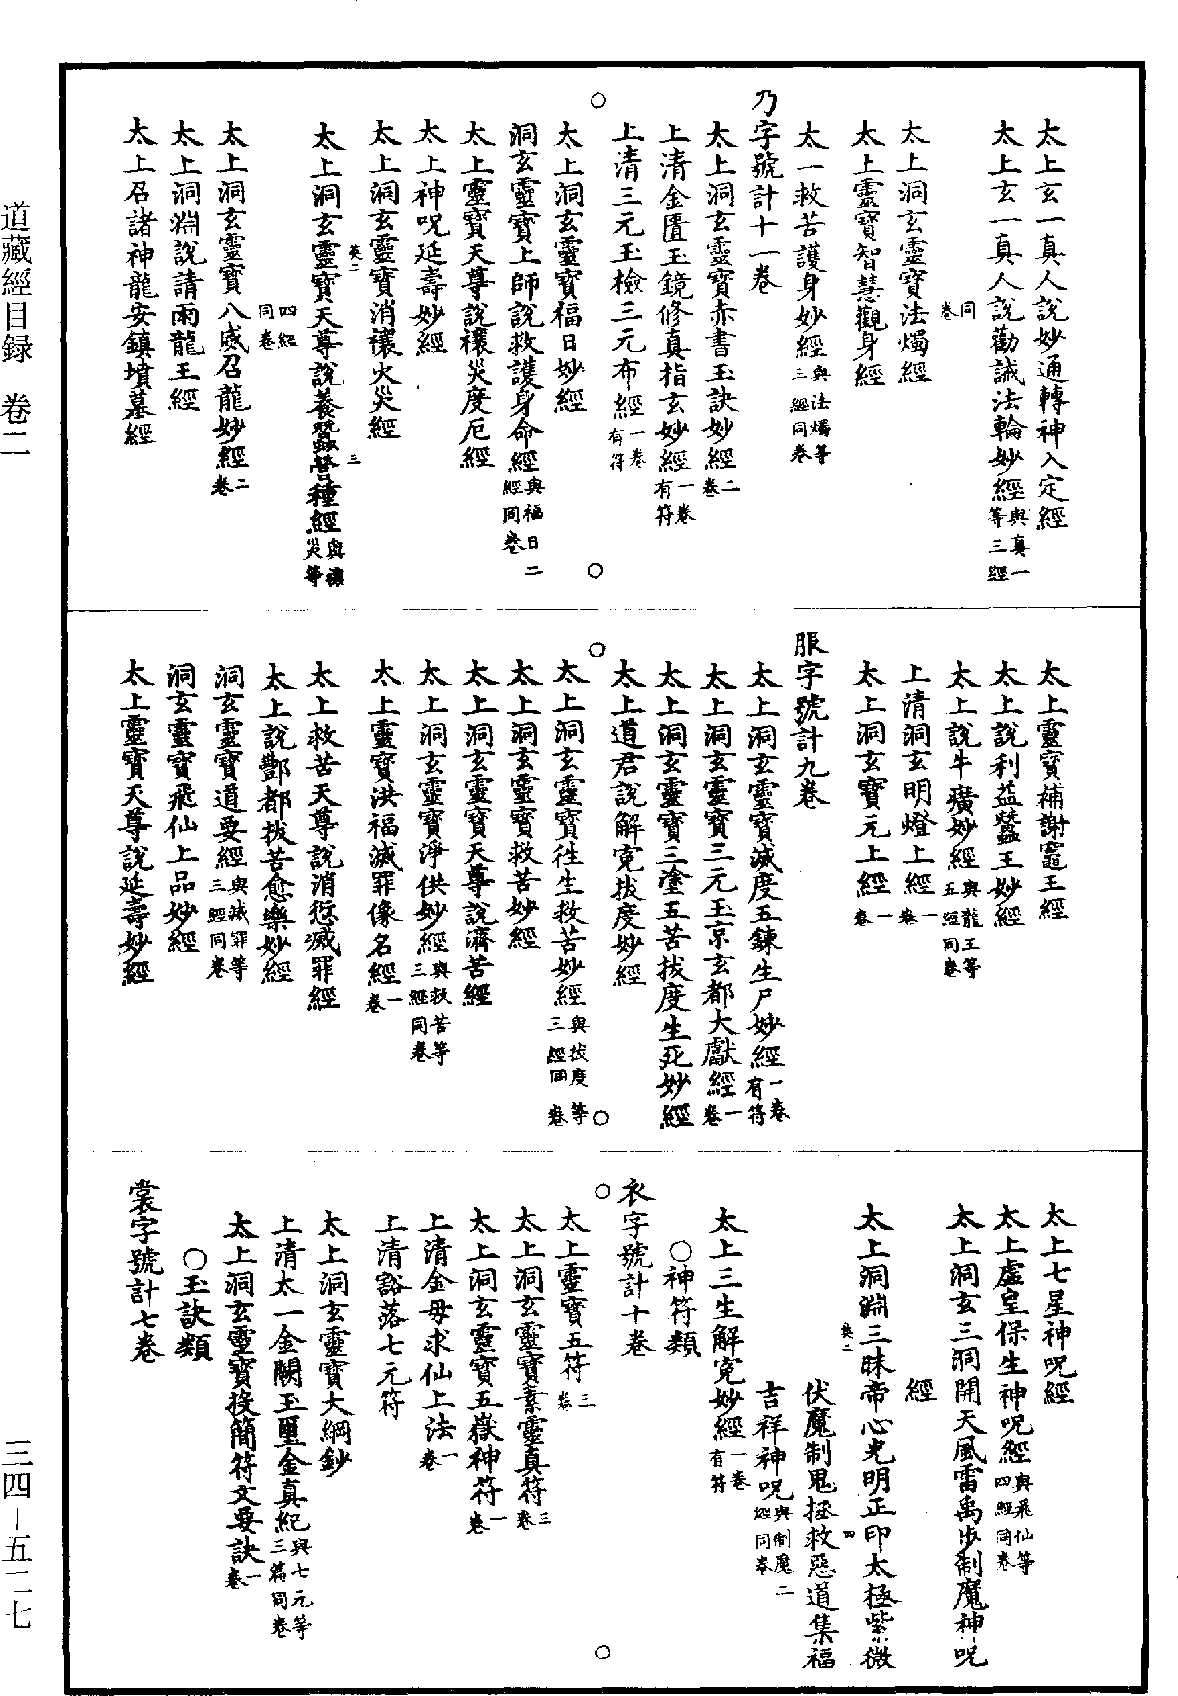 太上玄一真人說妙通轉神入定經
太上玄一真人說勸誡法輪妙經與真一等三經
同卷
太上洞玄靈寶法燭經
太上靈寶智慧觀身經
太一救苦護身妙經與法燭等三經同卷
乃字號計十一卷
太上洞玄靈寶赤書玉訣妙經二卷
上清金匱玉鏡修真指玄妙經一卷有符
上清三元玉檢三元布經一卷有符
太上洞玄靈寶福日妙經
洞玄靈寶上師說救護身命經與福日二經同卷
太上靈寶天尊說禳災度厄經
太上神呪延壽妙經
太上洞玄靈寶消禳火災經
太上洞玄靈寶天尊說養蠶營種經與禳災等
四經同卷
太上洞玄靈寶八威召龍妙經二卷
太上洞淵說請雨龍王經
太上召諸神龍安鎮墳墓經
太上靈寶補謝竈王經
太上說利益蠶王妙經
太上說牛癀妙經與龍王等五經同卷
上清洞玄明燈上經一卷
太上洞玄寶元上經一卷
服字號計九卷
太上洞玄靈寶滅度五鍊生尸妙經一卷有符
太上洞玄靈寶三元玉京玄都大獻經一卷
太上洞玄靈寶三塗五苦拔度生死妙經
太上道君說解冤拔度妙經
太上洞玄靈寶往生救苦妙經與拔度等三經同卷
太上洞玄靈寶救苦妙經
太上洞玄靈寶天尊說濟苦經
太上洞玄靈寶淨供妙經與救苦等三經同卷
太上靈寶洪福滅罪像名經一卷
太上救苦天尊說消愆滅罪經
太上說酆都拔苦愈樂妙經
洞玄靈寶道要經與滅罪等三經同卷
洞玄靈寶飛仙上品妙經
太上靈寶天尊說延壽妙經
太上七星神呪經
太上虛皇保生神呪經與飛仙等四經同卷
太上洞玄三洞開天風雷禹步制魔神呪
經
太上洞淵三昧帝心光明正印太極紫微
伏魔制鬼拯救惡道集福
吉祥神呪與制魔二經同卷
太上三生解冤妙經一卷有符
○神符類
衣字號計十卷
太上靈寶五符三卷
太上洞玄靈寶素靈真符三卷
太上洞玄靈寶五嶽神符一卷
上清金母求仙上法一卷
上清豁落七元符
太上洞玄靈寶大綱鈔
上清太一金闕玉璽金真紀與七元等三篇同卷
太上洞玄靈寶投簡符文要訣一卷
○玉訣類
裳字號計七卷
道藏經目録　卷二
三四－五二七